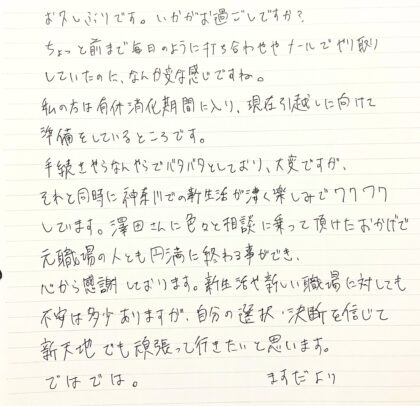 お久しぶりです。いかがお過ごしですか?
ちょっと前まで毎日のように打ち合わせやメールでやり取り
していたのに、なんか変な感じですね。
私の方は有休消化期間に入り、現在引越しに向けて
準備をしているところです。
手続きやらなんやらでバタバタとしており、大変ですが、
それと同時に神奈川での新生活が凄く楽しみでワクワク
しています。澤田さんに色々と相談に乗って頂けたおかげで
元職場の人とも円満に終わる事ができ、
心から感謝しております。新生活や新しい職場に対しても
不安は多少ありますが、自分の選択・決断を信じて
新天地でも頑張って行きたいと思います。
ではでは。 ますだより